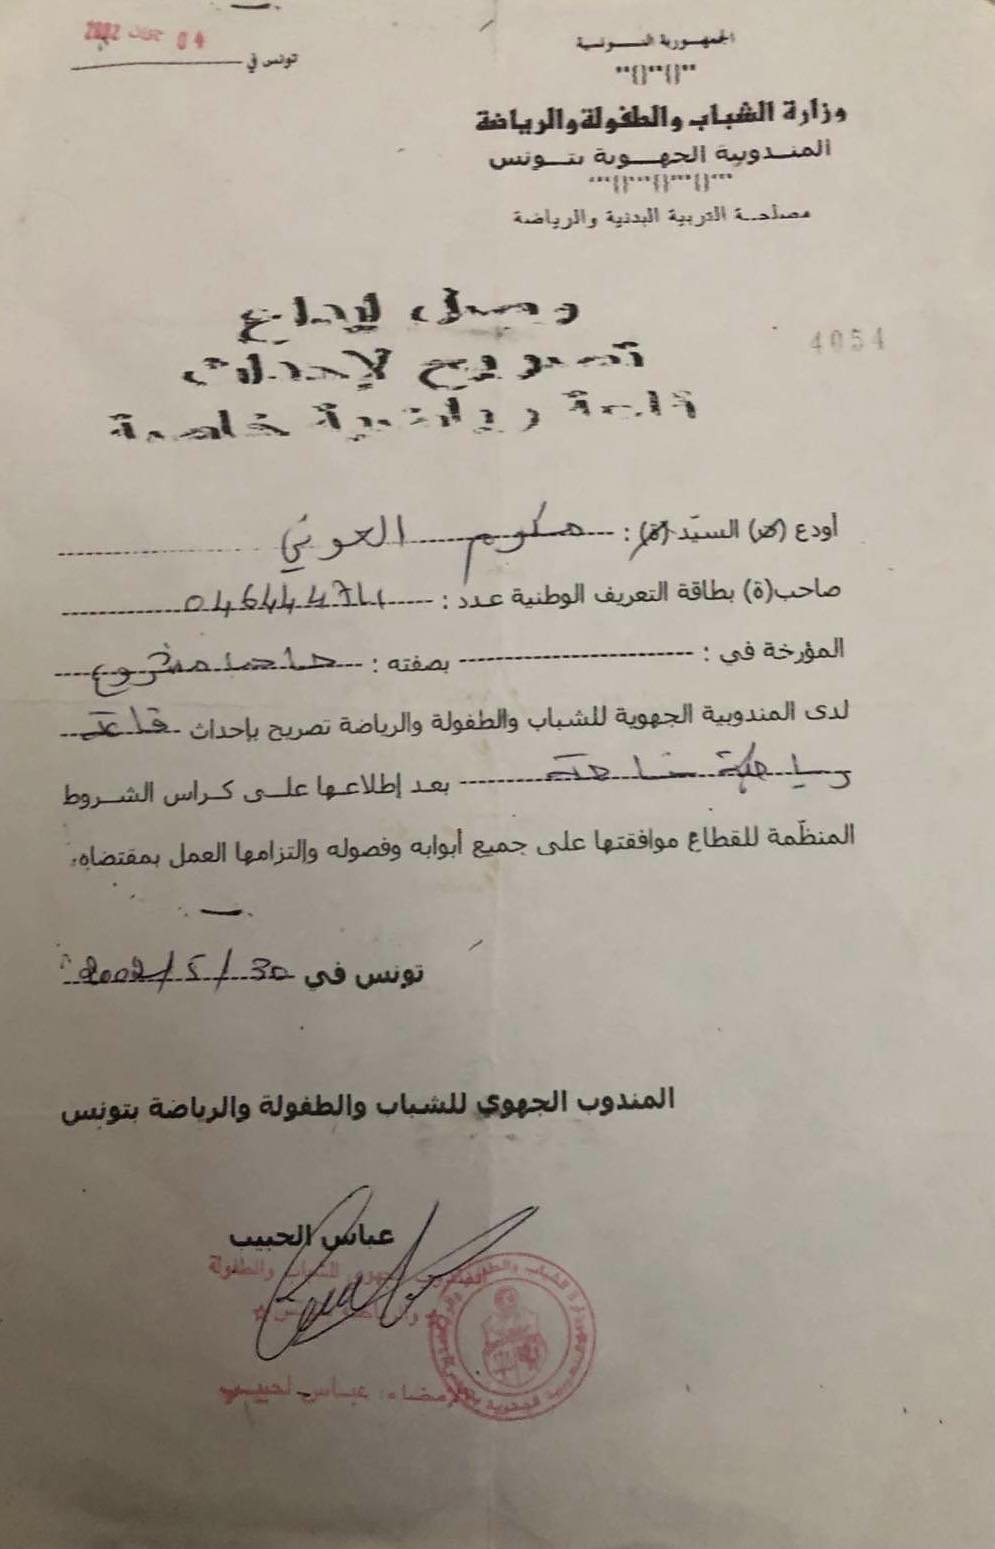 الجمهورية التونسية
وزارة الشباب والطفولة والرياضة
المندوبية الجهوية بتونس
مصلحة التربية البدنية والرياضة
تونس في 04 جوان 2002
وصل إيداع
تصريح لإحداث
قاعة رياضية خاصة
4054
أودع (ت) السيّد (ة) : مكرم العوني
صاحب(ة) بطاقة التعريف الوطنية عدد : 04644471
المؤرخة في : بصفته : صاحب مشروع
لدى المندوبية الجهوية للشباب والطفولة والرياضة تصريح بإحداث قاعة
رياضية خاصة بعد إطلاعها على كراس الشروط
المنظّمة للقطاع موافقتها على جميع أبوابه وفصوله وإلتزامها العمل بمقتضاه.
تونس في 30/5/2002
المندوب الجهوي للشباب والطفولة والرياضة بتونس
عباس الحبيب
المندوب الجهوي للشباب والطفولة
والرياضة بتونس
الإمضاء: عباس لحبيب